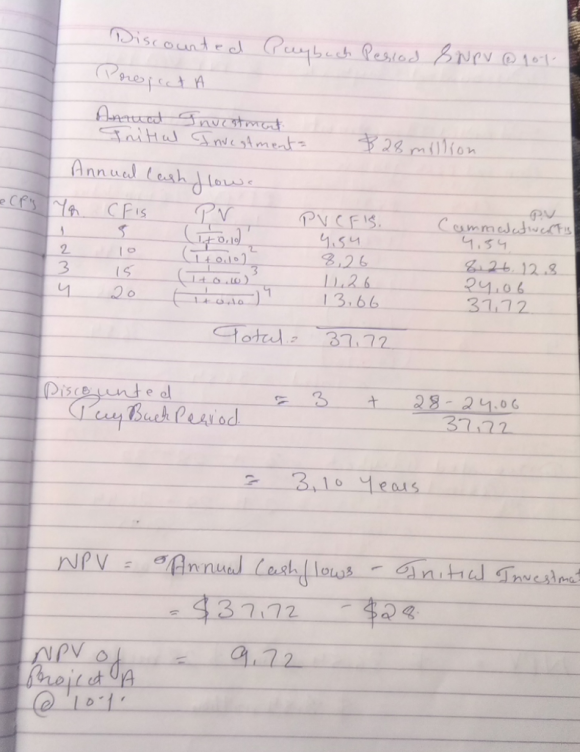 Discounted Payback Period & NPV @ 10%
Project A
Annual Investment
Initial Investment = $28 million
Annual Cash flow.
Yr CFis PV PVCFIS. PV Cammelatweets
1 5 (1/1+0.10)^1 4.54 4.54
2 10 (1/1+0.10)^2 8.26 8.26 12.8
3 15 (1/1+0.10)^3 11.26 24.06
4 20 (1/1+0.10)^4 13.66 37.72
Total = 37.72
Discounted PayBack Period = 3 + 28 - 24.06 / 37.72
= 3.10 Years
NPV = Annual Cashflows - Initial Investma
= $37.72 - $28
NPV of Project A @ 10% = 9.72